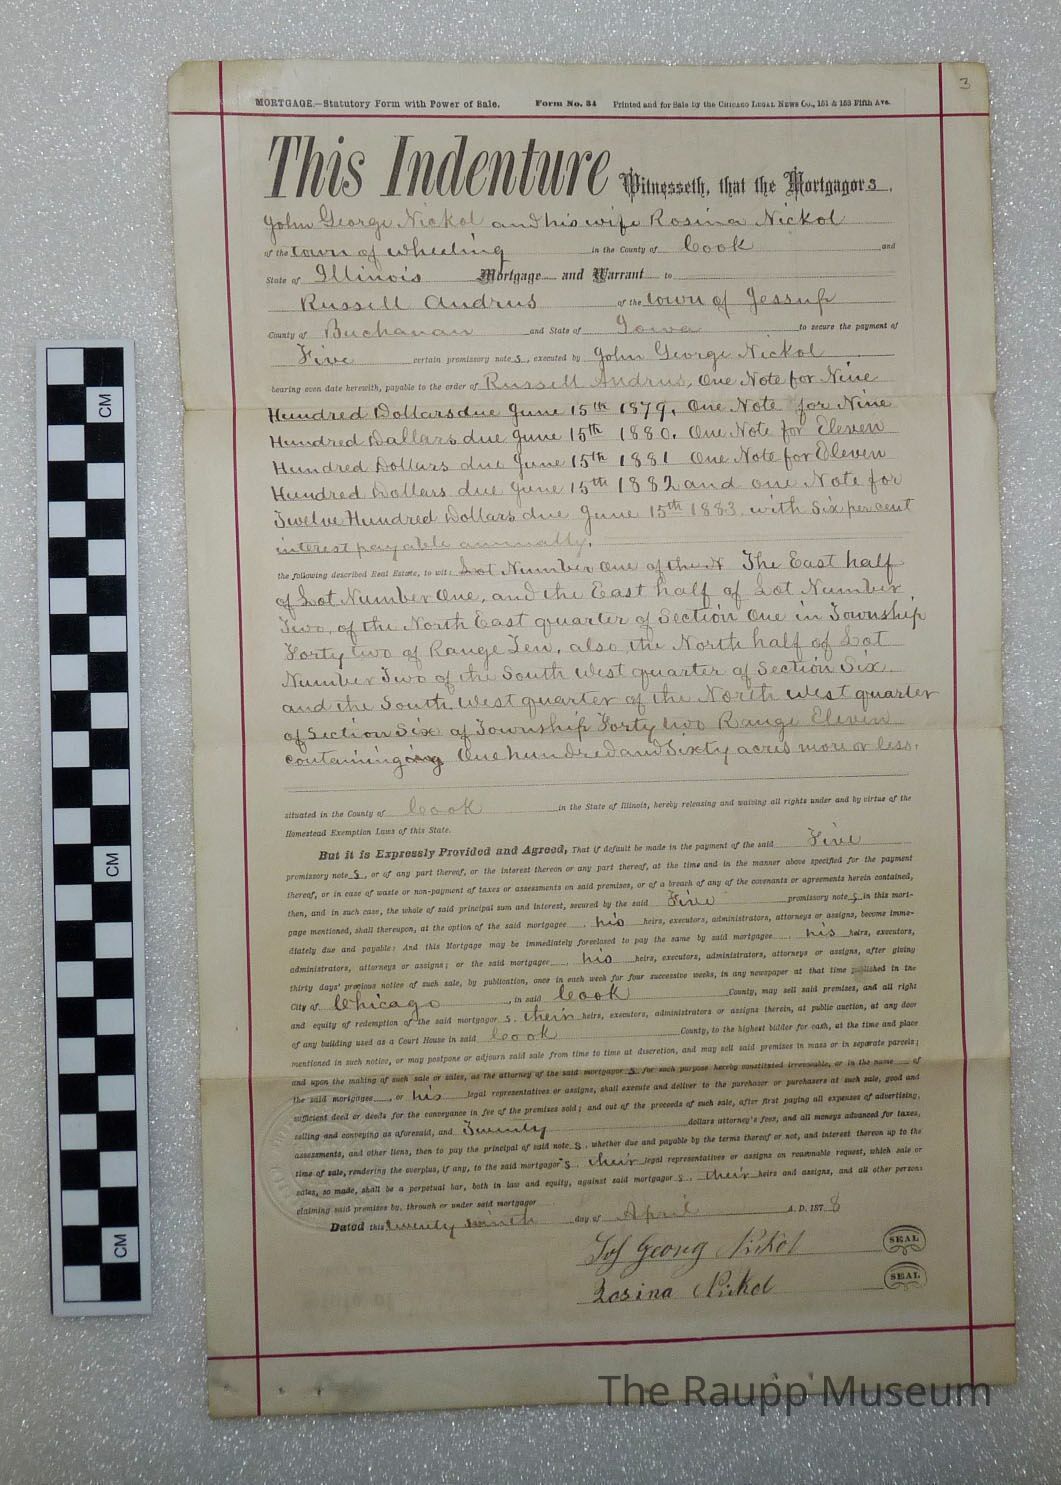 3
MORTGAGE.—Statutory Form with Power of Sale. Form No. 34 Printed and for Sale by the CHICAGO LEGAL NEWS CO., 151 & 153 Fifth Ave.
This Indenture Witnesseth, that the Mortgagors,
John George Nickol and his wife Rosina Nickol
of the town of Wheeling in the County of Cook and
State of Illinois Mortgage and Warrant to
Russell Andrus of the town of Jessup
County of Buchanan and State of Iowa to secure the payment of
Five certain promissory notes, executed by John George Nickol
bearing even date herewith, payable to the order of Russell Andrus, One Note for Nine
Hundred Dollars due June 15th 1879. One Note for Nine
Hundred Dollars due June 15th 1880. One Note for Eleven
Hundred Dollars due June 15th 1881 One Note for Eleven
Hundred Dollars due June 15th 1882 and one Note for
Twelve Hundred Dollars due June 15th 1883. with Six per cent
interest payable annually.
the following described Real Estate, to wit: Lot Number One of the N The East half
of Lot Number One, and the East half of Lot Number
Two, of the North East quarter of Section One in Township
Forty two of Range Ten, also the North half of Lot
Number Two of the South West quarter of Section Six
and the South West quarter of the North West quarter
of Section Six of Township Forty two Range Eleven
containing One hundred and Sixty acres more or less.
situated in the County of Cook in the State of Illinois, hereby releasing and waiving all rights under and by virtue of the
Homestead Exemption Laws of this State.
But it is Expressly Provided and Agreed, That if default be made in the payment of the said Five
promissory notes, or of any part thereof, or the interest thereon or any part thereof, at the time and in the manner above specified for the payment
thereof, or in case of waste or non-payment of taxes or assessments on said premises, or of a breach of any of the covenants or agreements herein contained,
then, and in such case, the whole of said principal sum and interest, secured by the said Five promissory notes in this mort-
gage mentioned, shall thereupon, at the option of the said mortgagee, his heirs, executors, administrators, attorneys or assigns, become imme-
diately due and payable: And this Mortgage may be immediately foreclosed to pay the same by said mortgagee his heirs, executors,
administrators, attorneys or assigns; or the said mortgagee, his heirs, executors, administrators, attorneys or assigns, after giving
thirty days' previous notice of such sale, by publication, once in each week for four successive weeks, in any newspaper at that time published in the
City of Chicago, in said Cook County, may sell said premises, and all right
and equity of redemption of the said mortgagors, their heirs, executors, administrators or assigns therein, at public auction, at any door
of any building used as a Court House in said Cook County, to the highest bidder for cash, at the time and place
mentioned in such notice, or may postpone or adjourn said sale from time to time at discretion, and may sell said premises in mass or in separate parcels;
and upon the making of such sale or sales, as the attorney of the said mortgagors for such purpose hereby constituted irrevocable, or in the name of
the said mortgagee, or his legal representatives or assigns, shall execute and deliver to the purchaser or purchasers at such sale, good and
sufficient deed or deeds for the conveyance in fee of the premises sold; and out of the proceeds of such sale, after first paying all expenses of advertising,
selling and conveying as aforesaid, and Twenty dollars attorney's fees, and all moneys advanced for taxes,
assessments, and other liens, then to pay the principal of said notes, whether due and payable by the terms thereof or not, and interest thereon up to the
time of sale, rendering the overplus, if any, to the said mortgagors, their legal representatives or assigns on reasonable request, which sale or
sales, so made, shall be a perpetual bar, both in law and equity, against said mortgagors, their heirs and assigns, and all other persons
claiming said premises by, through or under said mortgagor
Dated this twenty ninth day of April A. D. 1878
Georg Nickol SEAL
Rosina Nickol SEAL
CM
CM
CM
The Raupp Museum